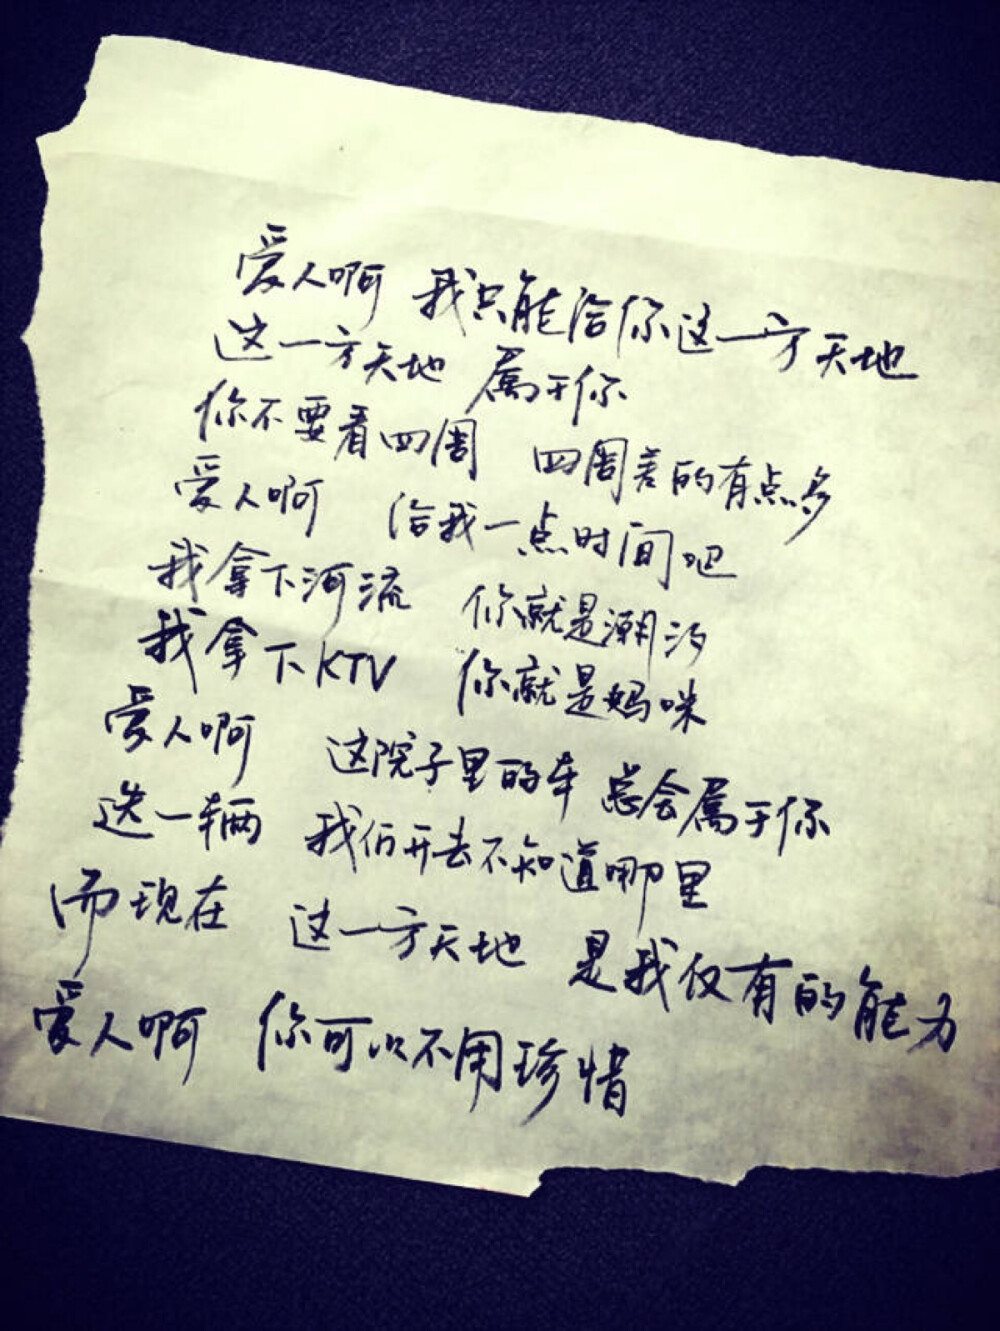 爱人啊 我只能给你这一方天地
这一方天地 属于你
你不要看四周 四周差的有点多
爱人啊 给我一点时间吧
我拿下河流 你就是潮汐
我拿下KTV 你就是妈咪
爱人啊 这院子里的车 总会属于你
选一辆 我们开去不知道哪里
而现在 这一方天地 是我仅有的能力
爱人啊 你可以不用珍惜